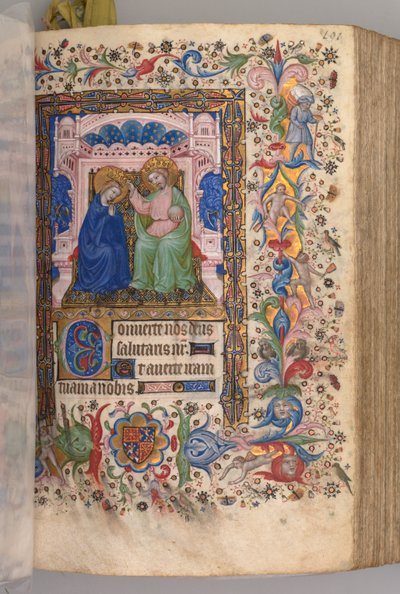 101
Converte nos deus
salutaris nr.
Et averte iram
tuam a nobis